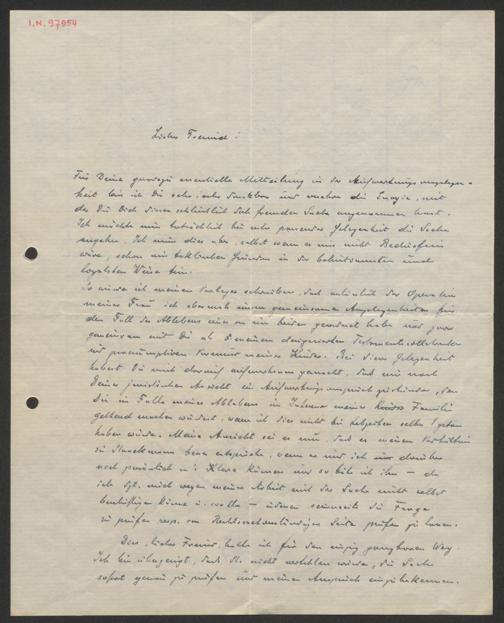 I.N. 97054
Lieber Freund!
Für Deine geradezu essentielle Mitteilung in der Aufwertungsangelegen-
heit bin ich Dir sehr, sehr dankbar und die Energie, mit
der Du Dich dieser schließlich doch fremden Sache angenommen hast.
Ich möchte nun tatsächlich bei der Gelegenheit die Sache
angehen. Ich muss dies aber, selbst wenn es mir nicht Bedürfnis
wäre, schon aus taktischen Gründen in der und
loyalsten Weise tun.
So würde ich meinem schreiben, daß anläßlich der Operation
meiner Frau ich abermals unsere gemeinsamen Angelegenheiten für
den Fall des Ablebens eines von uns beiden geordnet habe und zwar
gemeinsam mit Dir als meinem designierten Testamentsvollstrecker
und präsumptiven Vormund meines Kindes. Bei dieser Gelegenheit
habest Du mich darauf aufmerksam gemacht, daß mir nach
Deiner juristischen Ansicht ein Aufwertungsanspruch zustünde, den
Du im Falle meines Ablebens im Interesse meiner Familie
geltend machen würdest, wenn ich dies nicht bei Lebzeiten selbst getan
haben würde. Meine Ansicht sei es nun, daß es meinem Verhältnis
zu entspräche, wenn er und ich uns darüber
noch persönlich ins Klare kämen und so bäte ich ihn – da
ich mich wegen meiner Arbeit mit der Sache nicht selbst
beschäftigen könne u. wolle – seinerseits die Frage
zu prüfen resp. von Rechtssachverständiger Seite prüfen zu lassen.
Dies, lieber Freund, halte ich für den einzig gangbaren Weg.
Ich bin überzeugt, daß St. nicht verfehlen würde, die Sache
sofort genau zu prüfen und meinen Anspruch anzuerkennen.